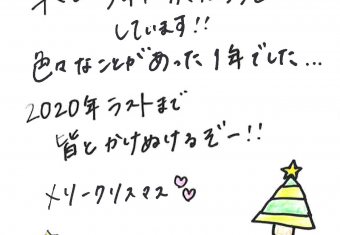 しています!!
色々なことがあった1年でした…
2020年ラストまで
皆とかけぬけるぞー!!
メリークリスマス